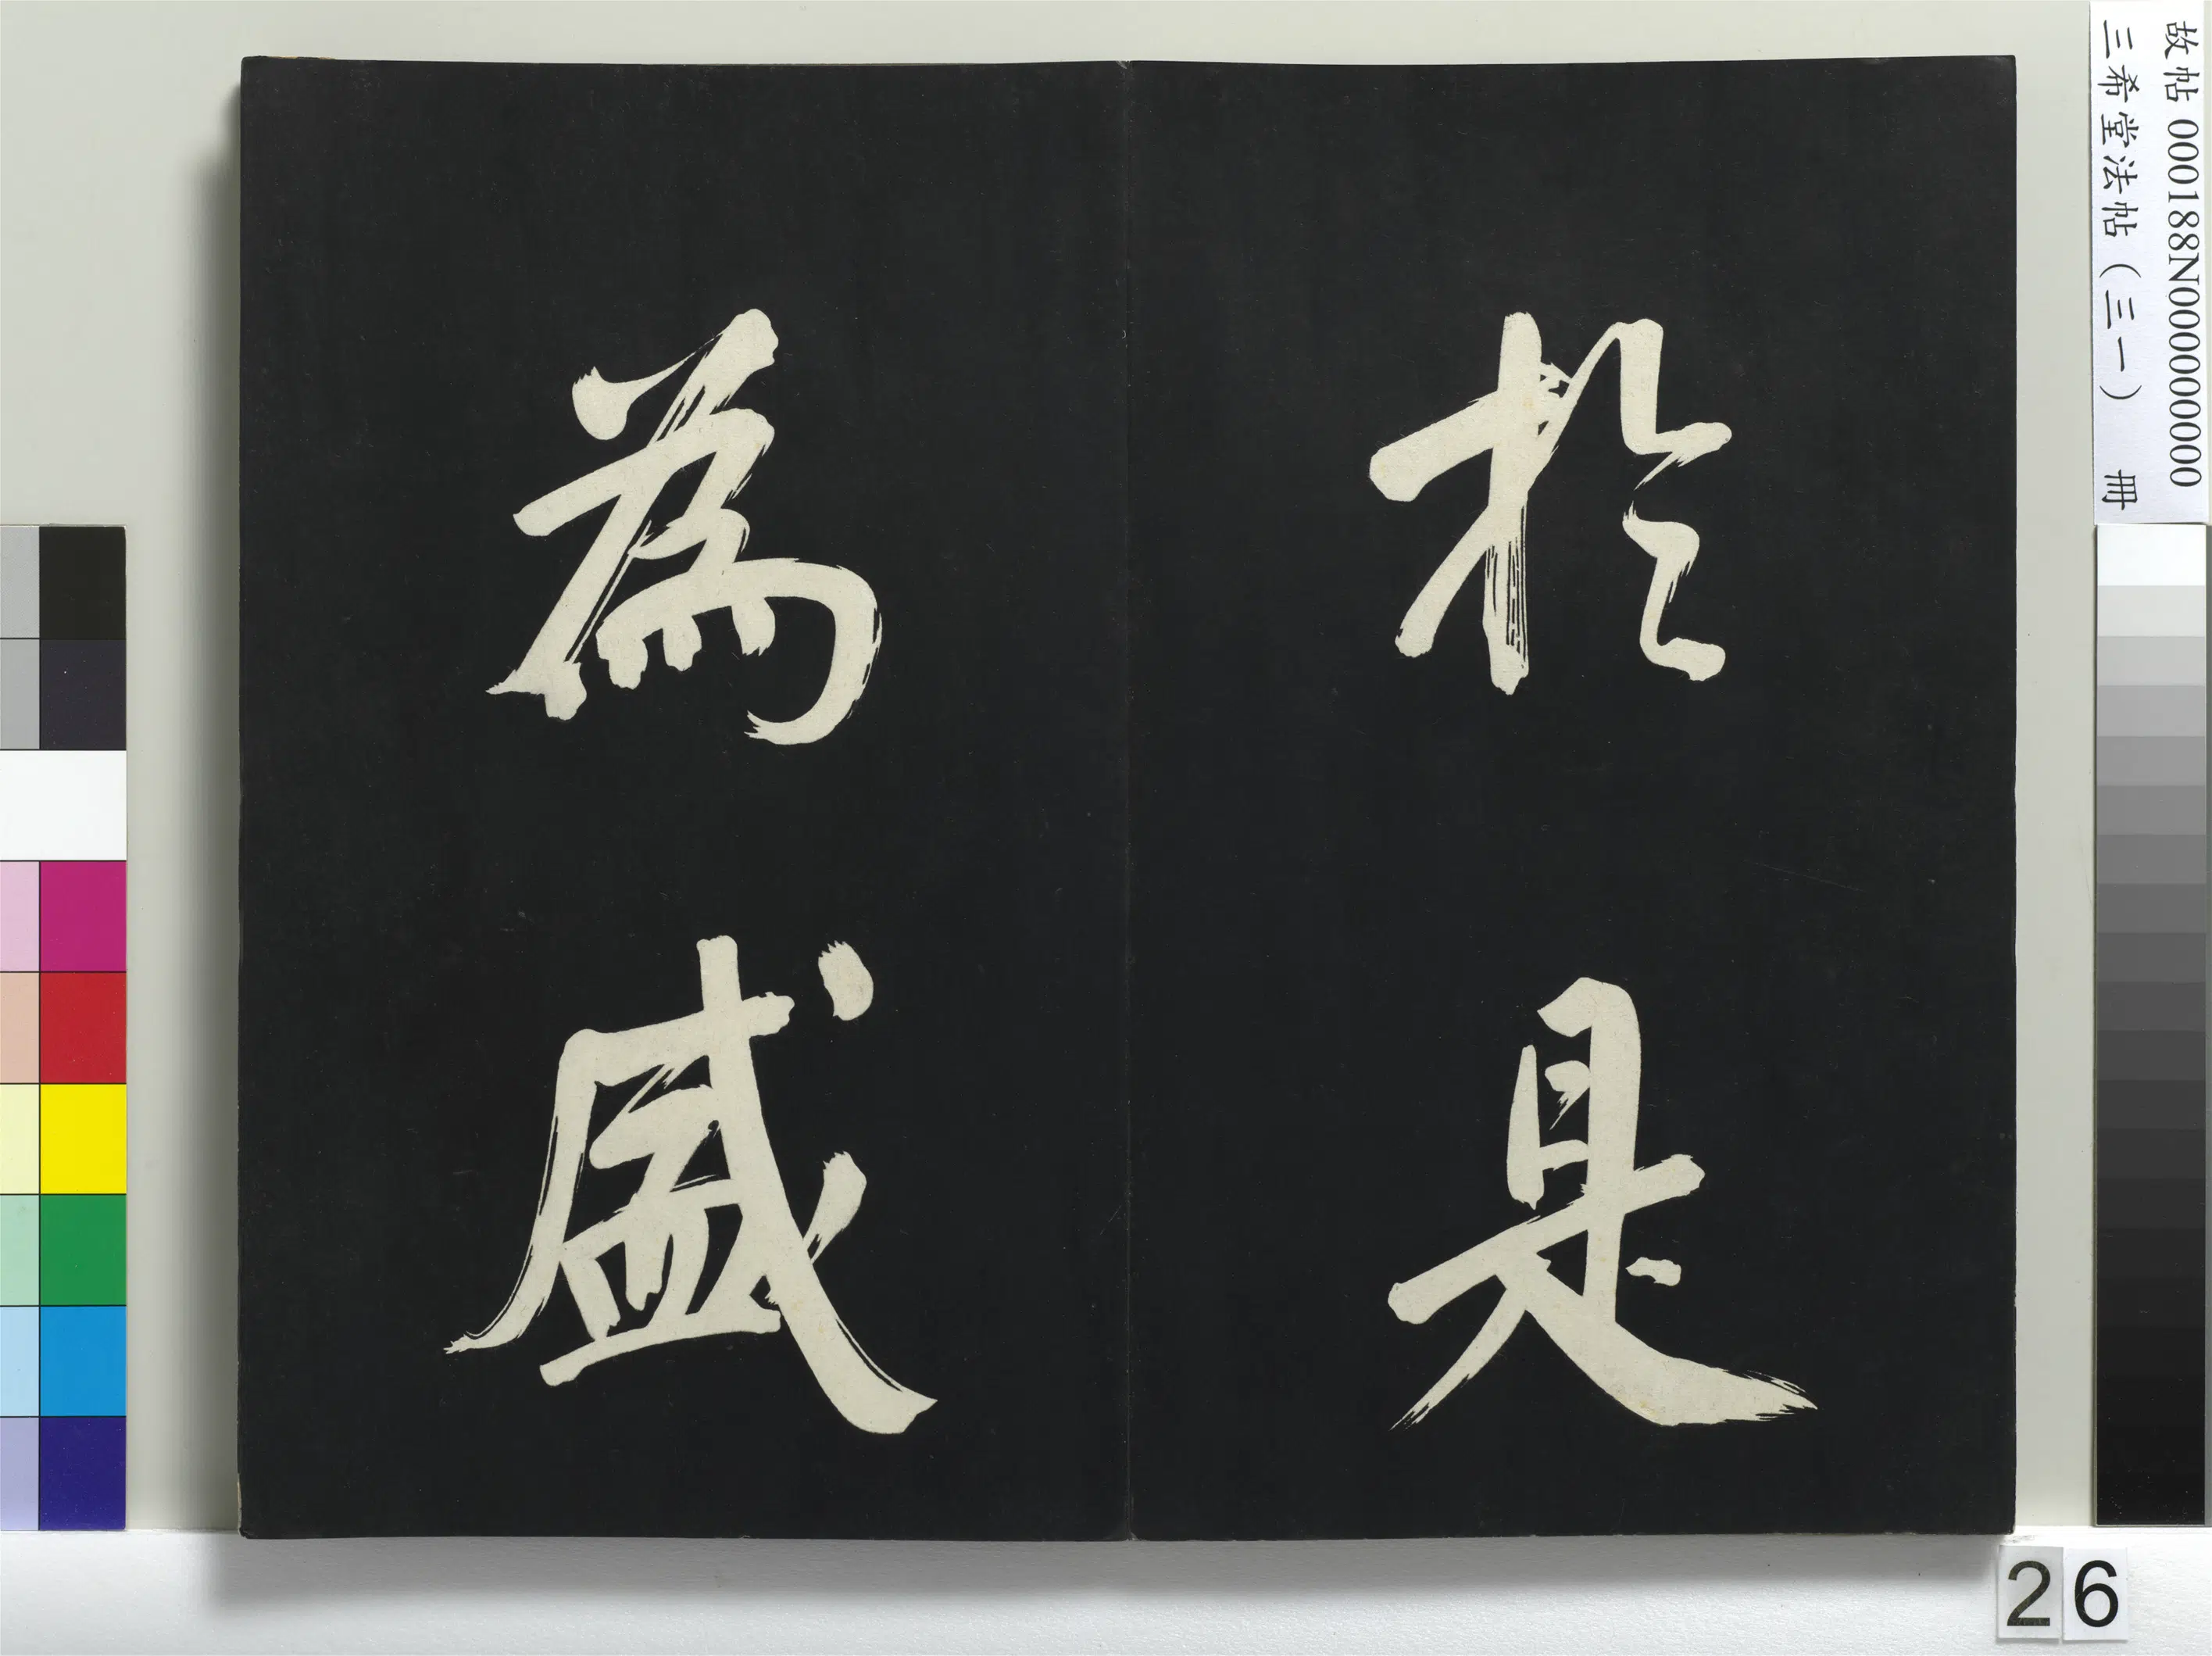 於是
為盛
故帖 000188N000000000
三希堂法帖（三一） 冊
26